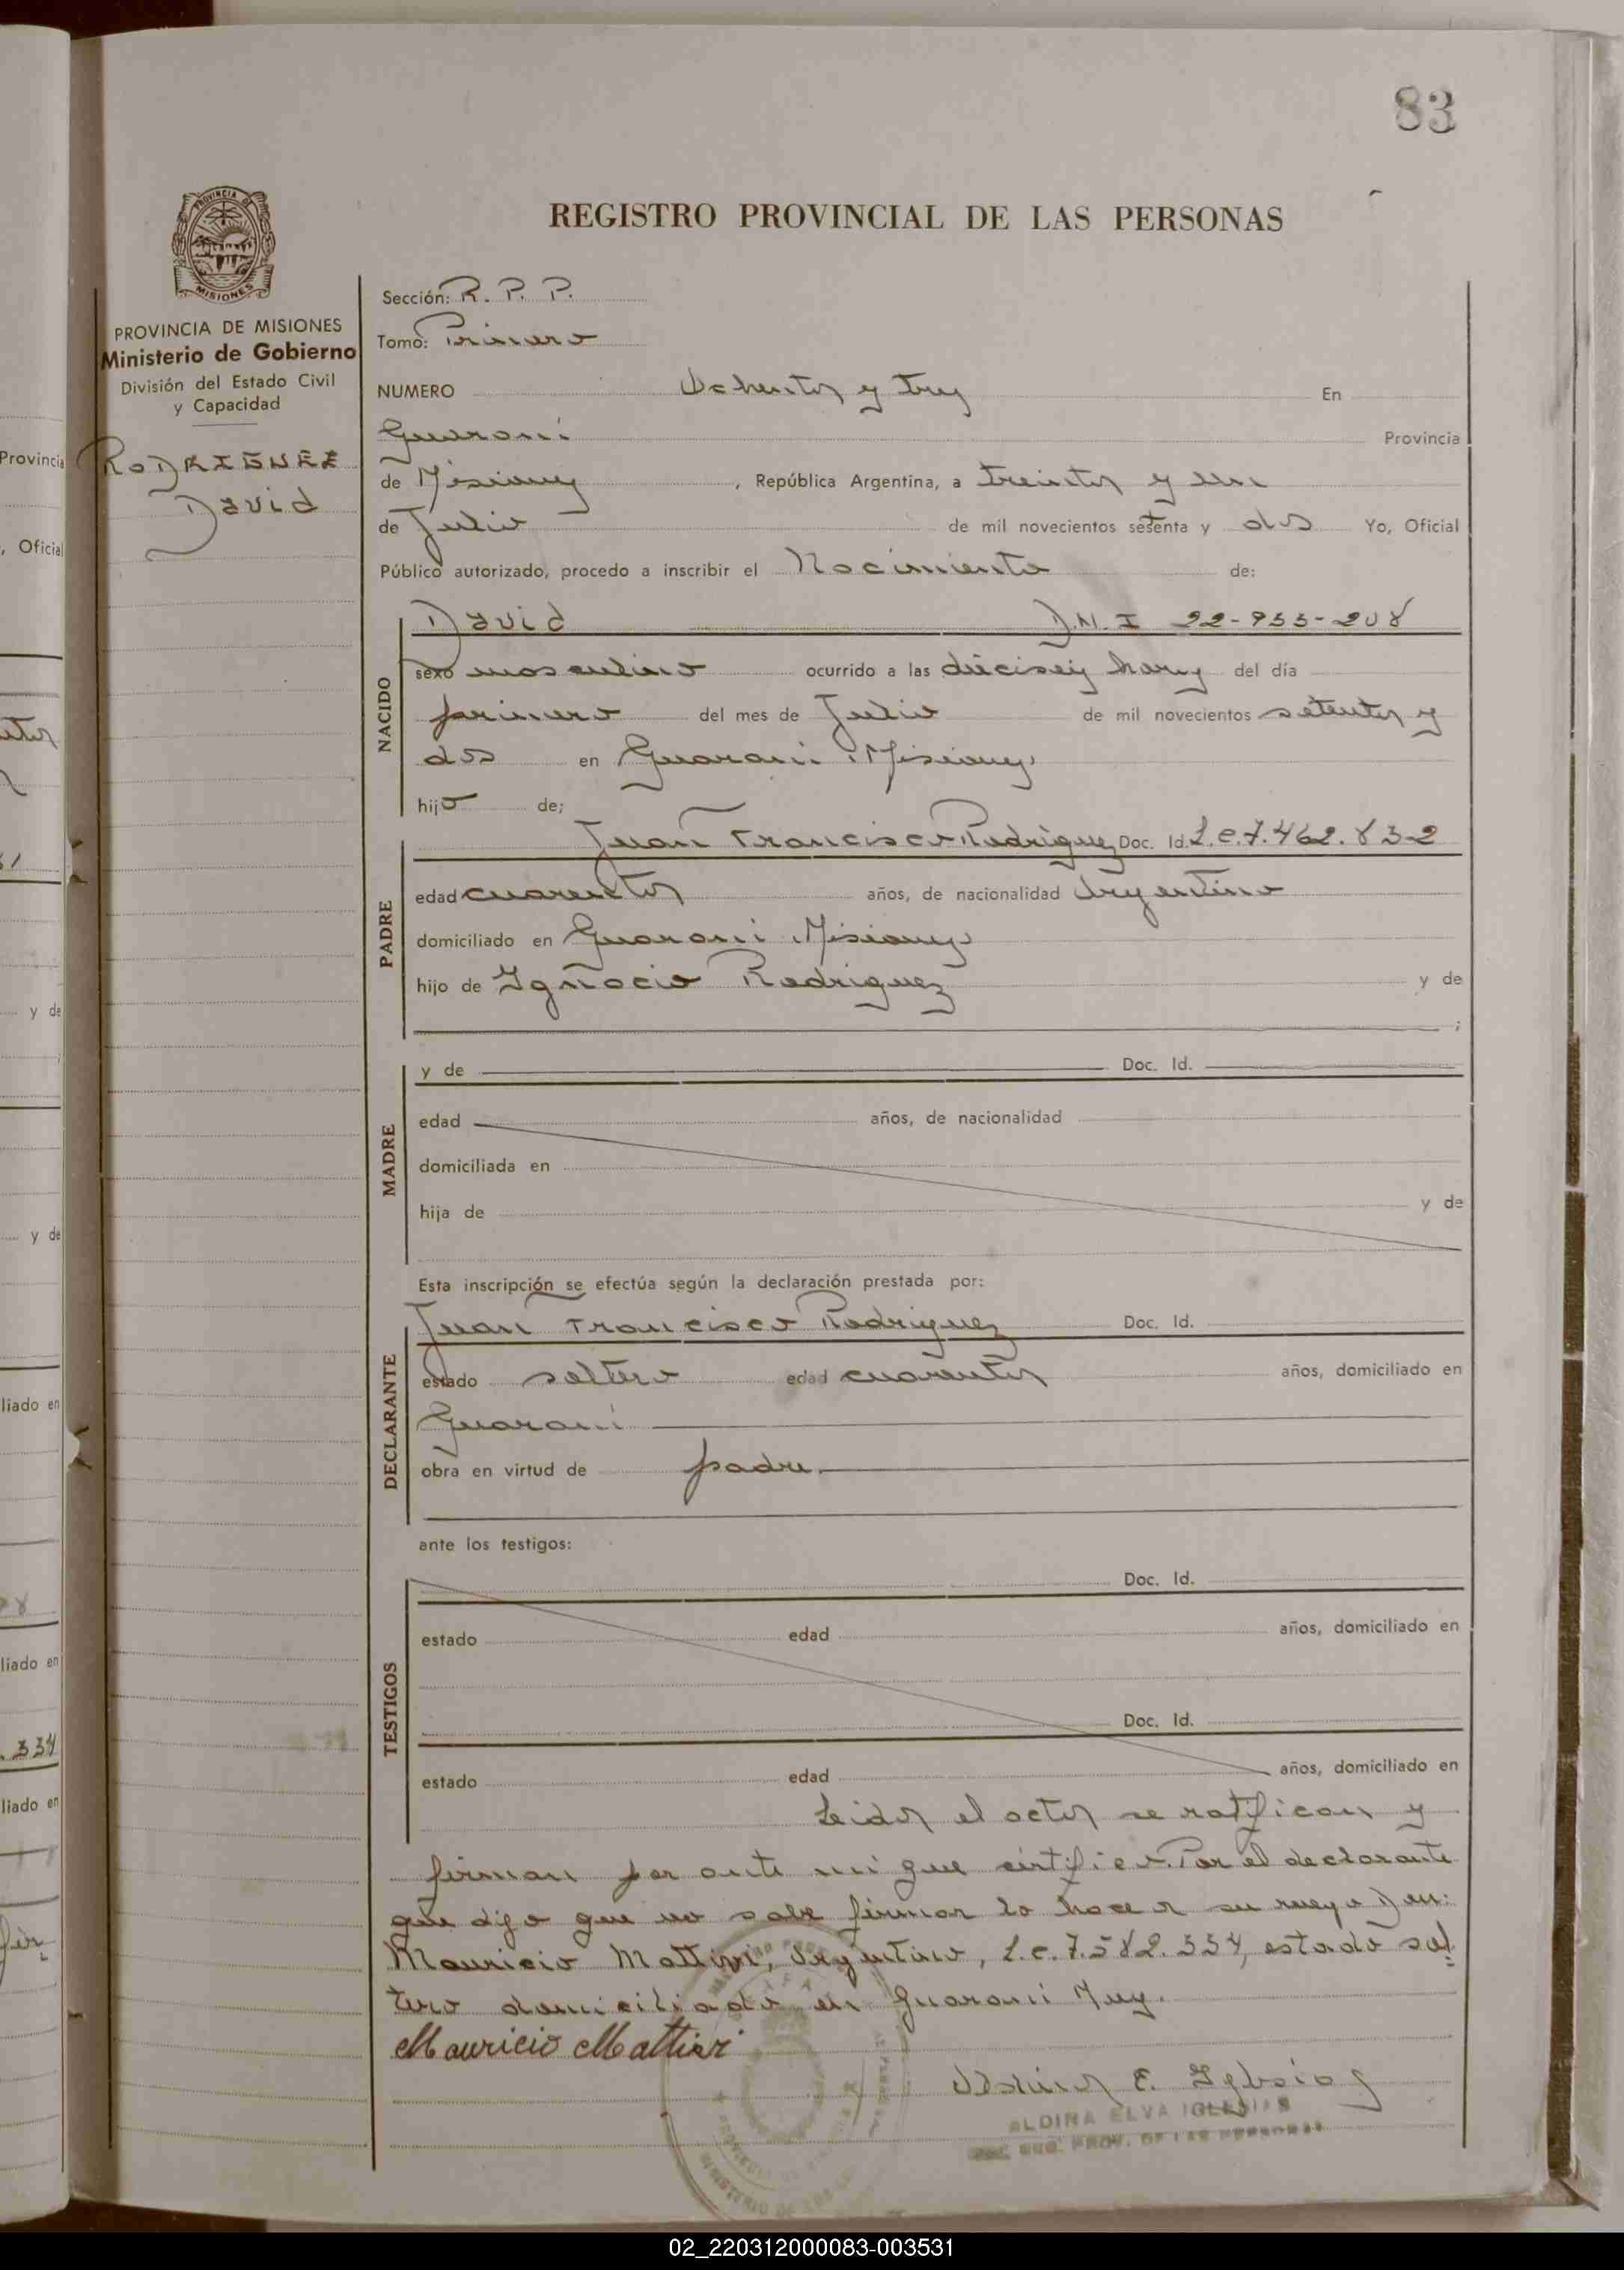 83
REGISTRO PROVINCIAL DE LAS PERSONAS
PROVINCIA DE
MISIONES
PROVINCIA DE MISIONES
Ministerio de Gobierno
División del Estado Civil
y Capacidad
RODRIGUEZ
David
Sección: R. P. P.
Tomo: Primero
NUMERO Ochenta y tres En
Guaraní Provincia
de Misiones, República Argentina, a treinta y uno
de Julio de mil novecientos setenta y dos Yo, Oficial
Público autorizado, procedo a inscribir el Nacimiento de:
NACIDO
David D.N.I 22-955-208
sexo masculino ocurrido a las dieciseis horas del día
primero del mes de Julio de mil novecientos setenta y
dos en Guaraní Misiones
hijo de;
PADRE
Juan Francisco Rodriguez Doc. Id. L.e.7.462.832
edad cuarenta años, de nacionalidad Argentino
domiciliado en Guaraní Misiones
hijo de Ignacio Rodriguez y de
;
MADRE
y de Doc. Id.
edad años, de nacionalidad
domiciliada en
hija de y de
Esta inscripción se efectúa según la declaración prestada por:
DECLARANTE
Juan Francisco Rodriguez Doc. Id.
estado soltero edad cuarenta años, domiciliado en
Guaraní
obra en virtud de padre
ante los testigos:
TESTIGOS
Doc. Id.
estado edad años, domiciliado en
Doc. Id.
estado edad años, domiciliado en
Leida el acta se ratifican y
firman por ante mi que certifico. Por el declarante
que dijo que no sabe firmar lo hace a su ruego Don:
Mauricio Mattivi, Argentino, L.e. 7.582.334, estado sol
tero domiciliado en Guaraní
Mauricio Mattivi
Aldina E. Iglesias
ALDINA ELVA IGLESIAS
Provincia
, Oficial
y de
y de
liado en
liado en
.334
liado en
02_220312000083-003531